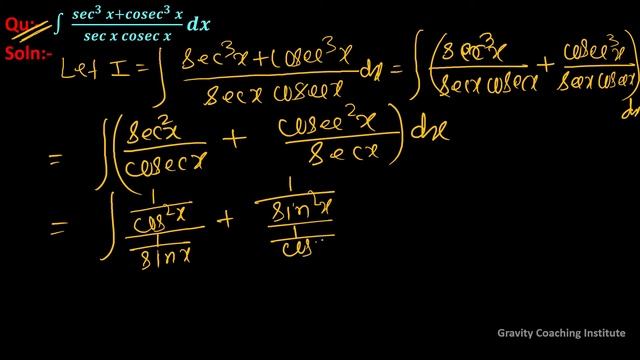 Qu:- ∫ (sec³ x+cosec³ x)/(sec x cosec x) dx
Soln:-
Let I = ∫ (sec³x + cosec³x)/(secx cosecx) dx = ∫ (sec³x/(secx cosecx) + cosec³x/(secx cosecx)) dx
= ∫ (sec²x/cosecx + cosec²x/secx) dx
= ∫ (1/cos²x)/(1/sinx) + (1/sin²x)/(1/cos
Gravity Coaching Institute